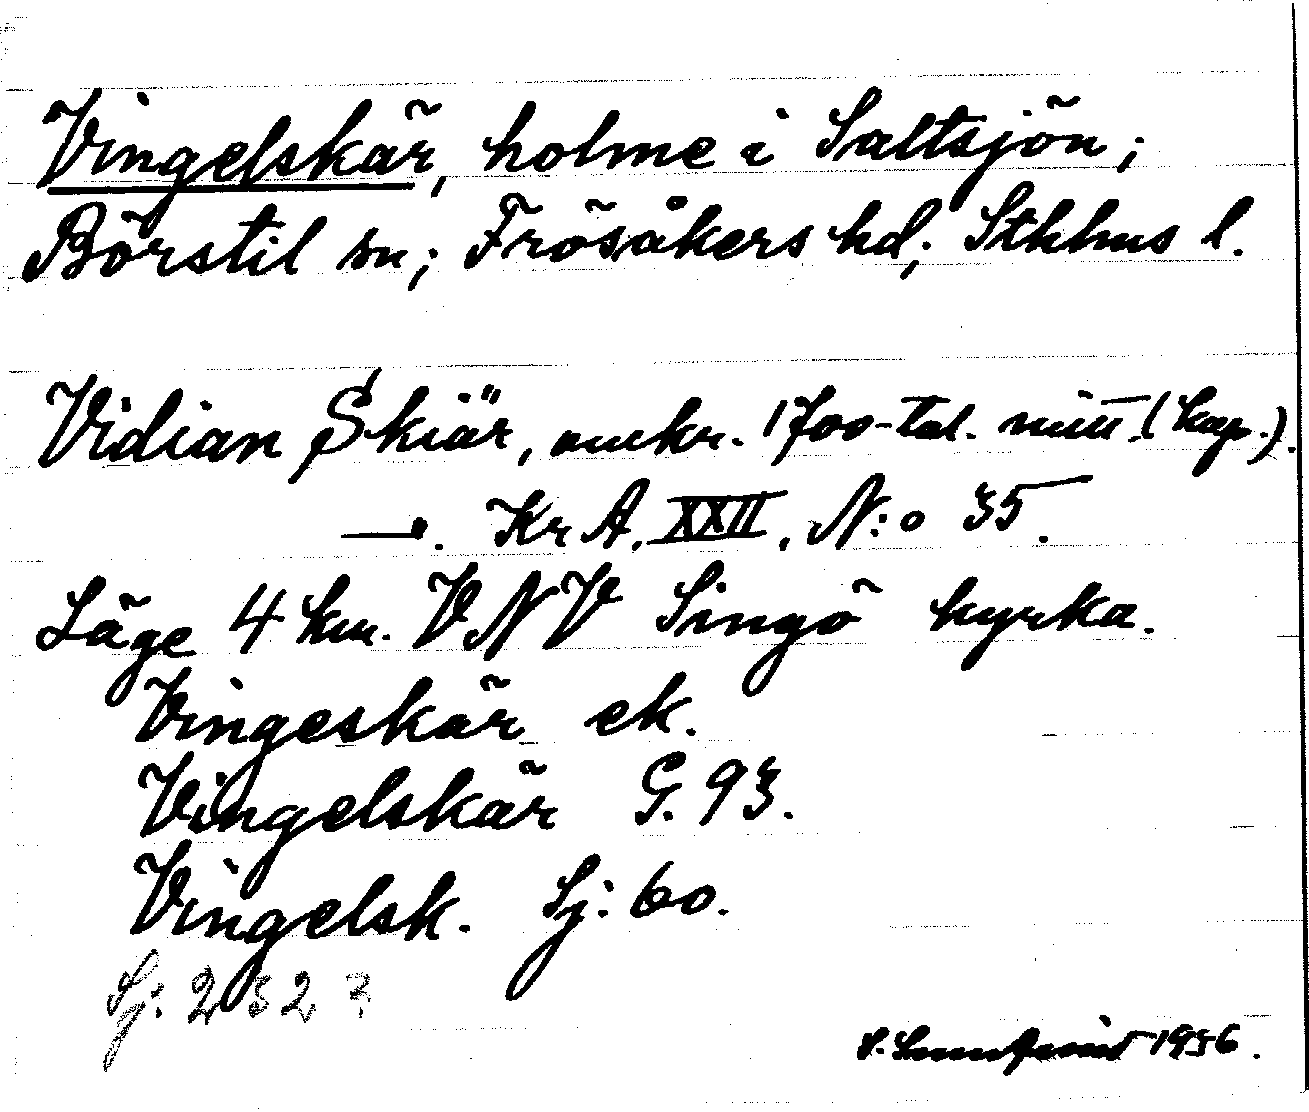 Vingelskär, holme i Saltsjön;
Börstil sn; Frösåkers hd; Sthlms l.
Vidian Skiär, omkr. 1700-tal. mitt. (kop.).
Kr A. XXII, N:o 35.
Läge 4 km. VNV Singö kyrka.
Vingeskär ek.
Vingelskär G. 93.
Vingelsk. Sj: 60.
Sj: 2 52
1956.